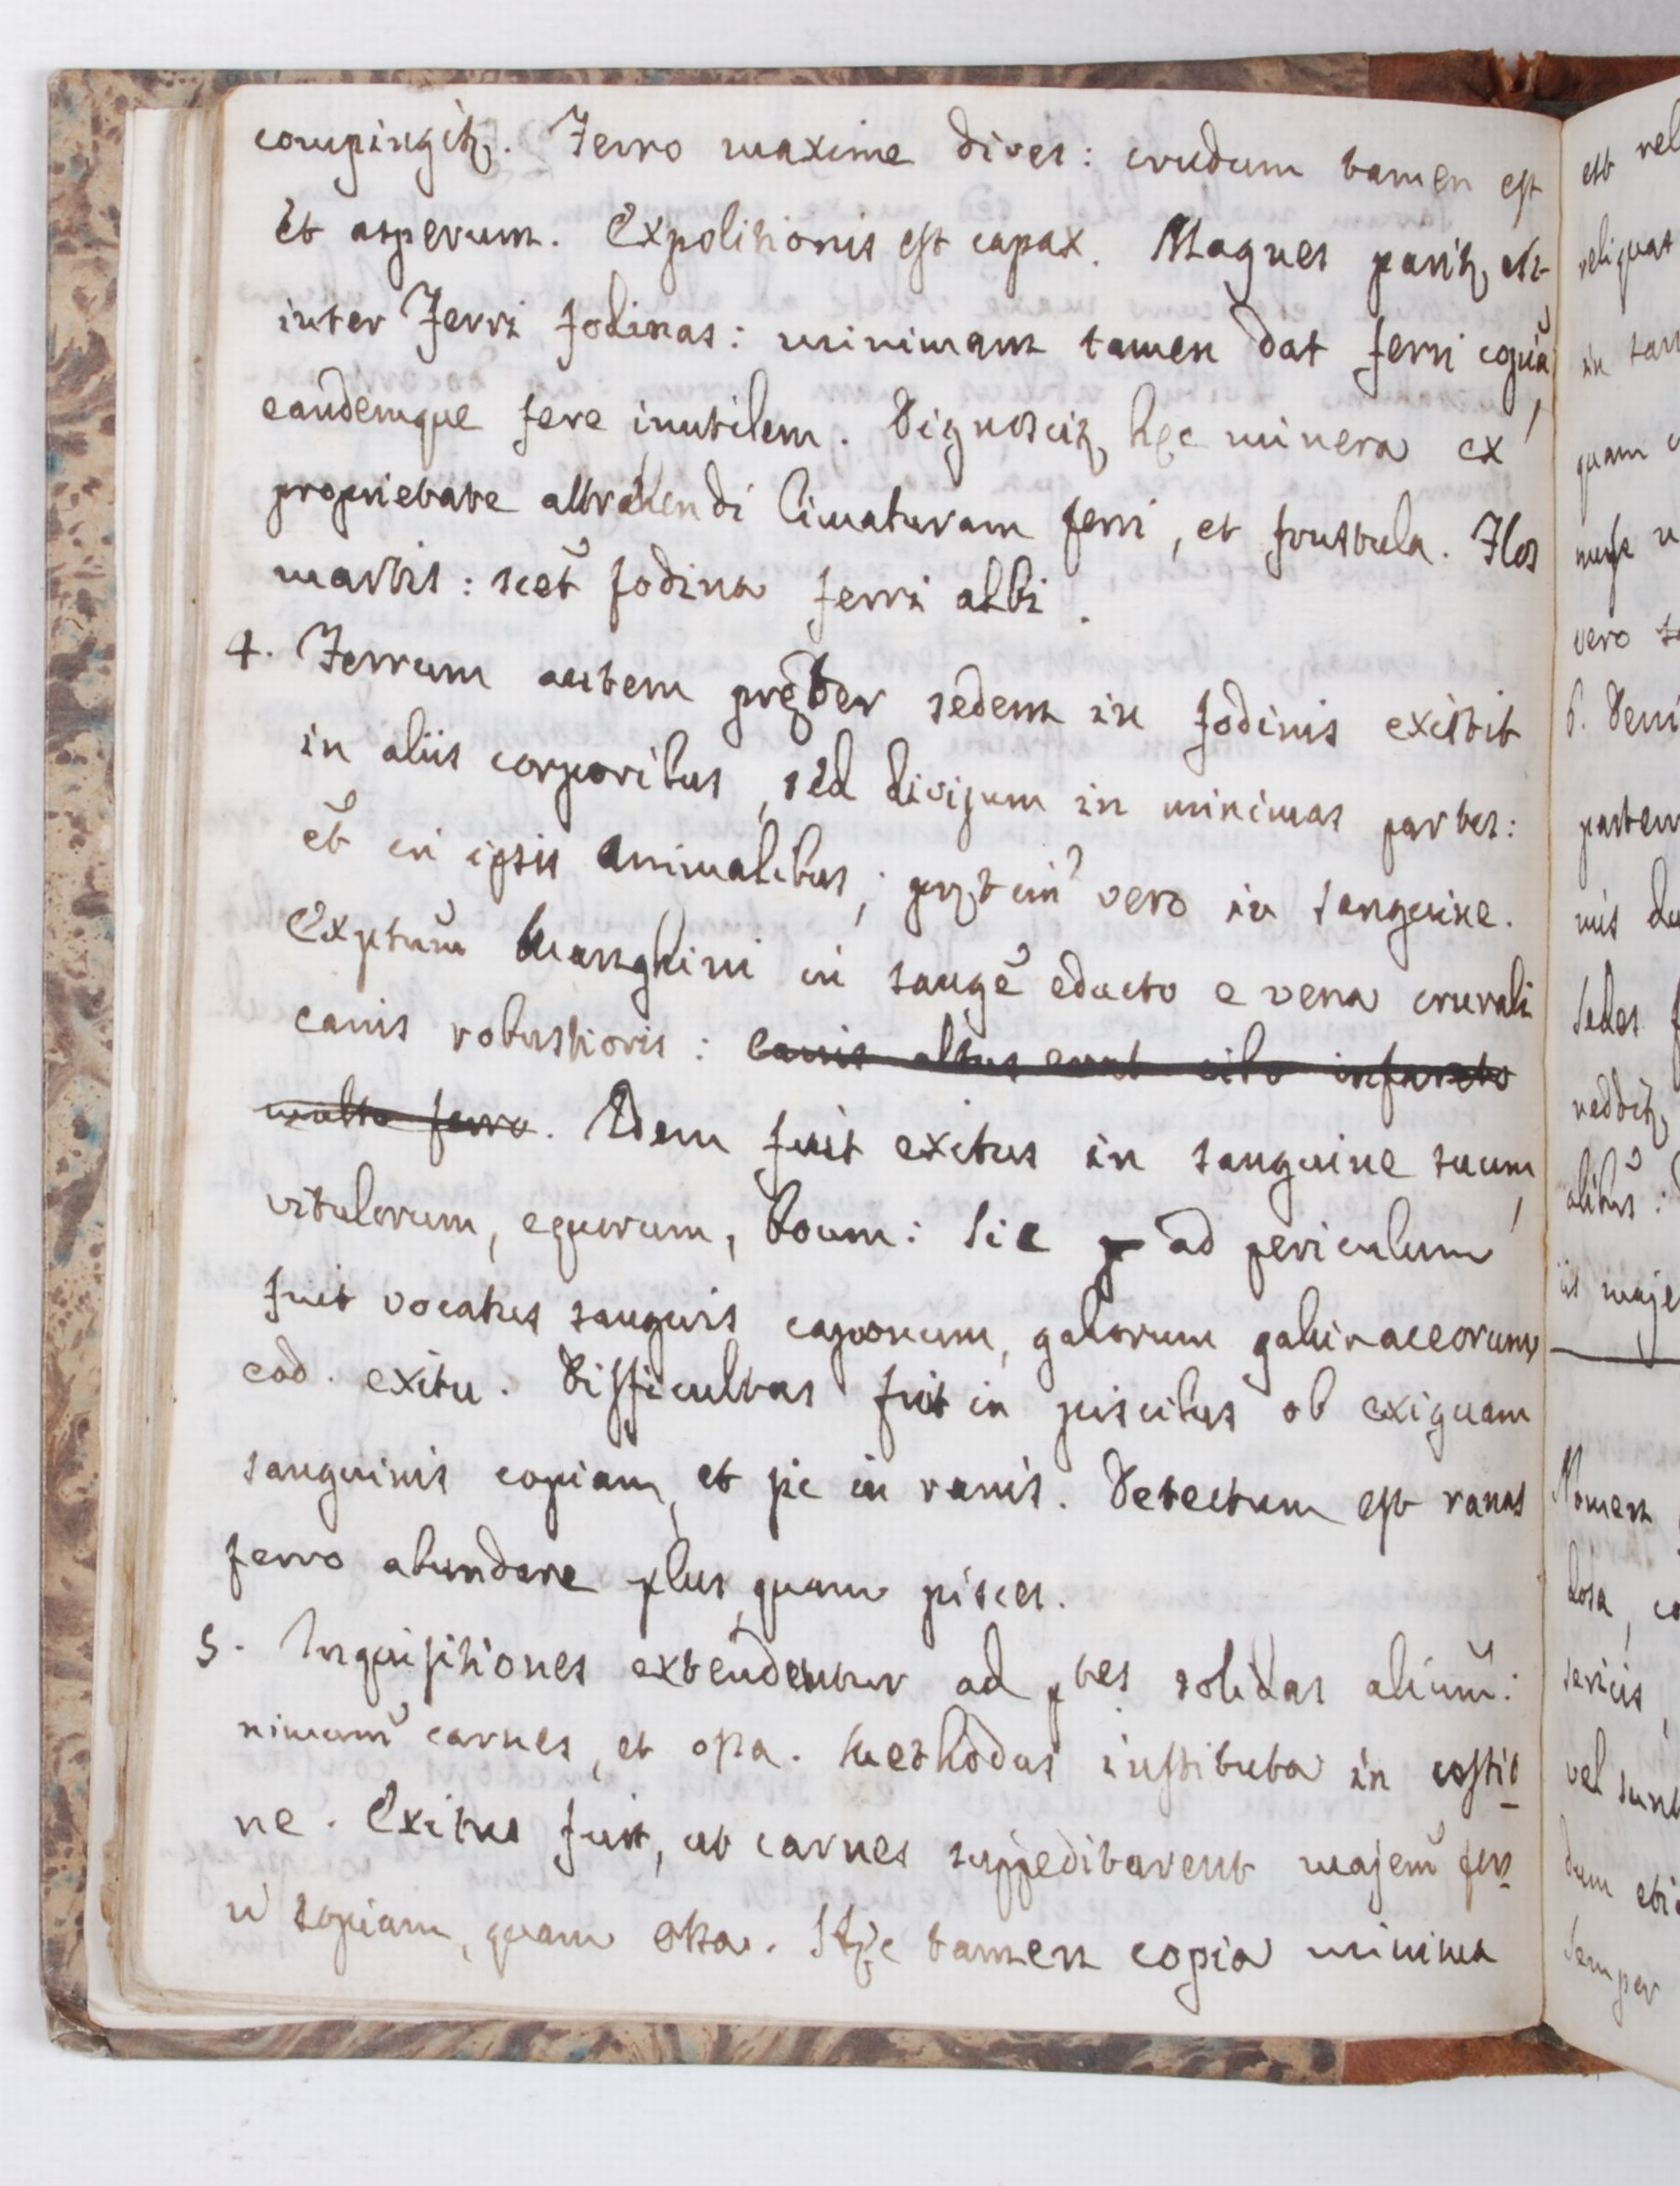 compingitꝫ. Ferro maxime dives: crudum tamen est
et asperum. Expolitionis est capax. Magnes paritꝫ est
inter Ferri Fodinas: minimam tamen dat ferri copiā,
eandemque fere inutilem. Dignosciꝫ hęc minera ex
proprietate attrahendi limaturam ferri, et frustula. Flos
martis: scet̃ fodina ferri albi.
4. Ferrum autem pręter sedem in Fodinis existit
in aliis corporibus, sed divisum in minimas partes:
et̃ in ipsis animalibus; vero in sanguine.
Exptum̃ Menghini in sangẽ educto e vena crurali
canis robustioris: canis altus erat cibo infarcto
multo ferro. Idem fuit exitus in sanguine suum,
vitulorum, equorum, boum: sic p ad periculum
fuit vocatus sanguis caponum, galorum galinaceorum
eod. exitu. Difficultas fuit in piscibus ob exiguam
sanguinis copiam, et sic in ranis. Detectum est ranas
ferro abundare plus quam pisces.
5. Inquisitiones extendentur ad ptes solidas alium̃:
nimum̃ carnes, et ossa. Methodus instituta in costio
ne. Exitus fuit, ut carnes suppeditarent majem̃ ferr
i copiam, quam ossa. Hęc tamen copia minima
est
reliquas
in
quam
nuse
vero
6.
partem
nis
sedes
redditꝫ
alibus̃:
is
Nomen
losa, co
sericis
vel sunt
dum
semper